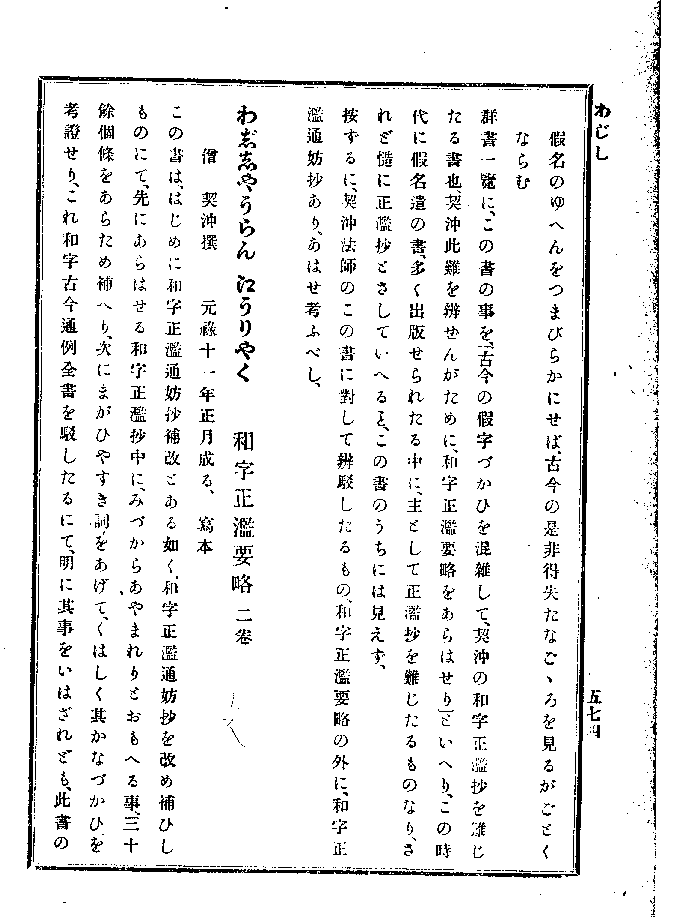 わじし
五七四
假名のゆへんをつまびらかにせば、古今の是非得失たなごゝろを見るがごとく
ならむ
群書一覽に、この書の事を、「古今の假字づかひを混雜して、契沖の和字正濫抄を難じ
たる書也、契沖此難を辨せんがために、和字正濫要略をあらはせり」といへり、この時
代に假名遣の書、多く出版せられたる中に、主として正濫抄を難じたるものなり、さ
れど慥に正濫抄とさしていへる〻、この書のうちには見えず、
按するに、契沖法師のこの書に對して辨駁したるもの、和字正濫要略の外に、和字正
濫通妨抄あり、あはせ考ふべし、
わじしやうらん えうりやく 和字正濫要略 二卷
僧 契沖撰 元祿十一年正月成る、 寫本
この書は、はじめに和字正濫通妨抄補改とある如く、和字正濫通妨抄を改め補ひし
ものにて、先にあらはせる和字正濫抄中に、みづからあやまれりとおもへる事、三十
餘個條をあらため補へり、次にまがひやすき詞をあげて、くはしく其かなづかひを
考證せり、これ和字古今通例全書を駁したるにて、明に其事をいはざれども、此書の